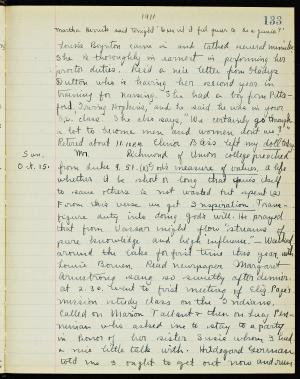 1911
133
Martha Armitt said tonight "how'd it feel
Louise Boynton came in and talked several minutes
She is thoroughly in earnest in performing her
proctor duties. Read a nice letter from Gladys
Dutton who is having her second year in
training for nursing. She had a boy from Pitts-
ford, Irving Hopkins, and he said he was in your
S.S. class. She also says, "We certainly go through
a lot to become men and women don't we?"
Retired about 11. Elinor B. left my
Sun. Mr. Richmond of Union college preached
Oct. 15. from Luke 9. 51. measure of values, a life
whether it be short or long that gives itself
to save others is not wasted but spent
From this verse we get Inspiration Trans-
figure duty into doing God's will. He prayed
that from Vassar might flow "streams of
pure knowledge and high influence." – Walked
around the lake for first time this year with
Louise Bowen. Read newspaper. Margaret
Armstrong sang so sweetly after dinner.
at 2.30. Went to first meeting of Eliz. Page's
mission study class on the Indians.
Called on Marion Tallant & then on Lucy Pen-
niman who asked me to stay to a party
in honor of her sister Susie whom I had
a nice little talk with. Hildegard
told me I ought to get out now and run